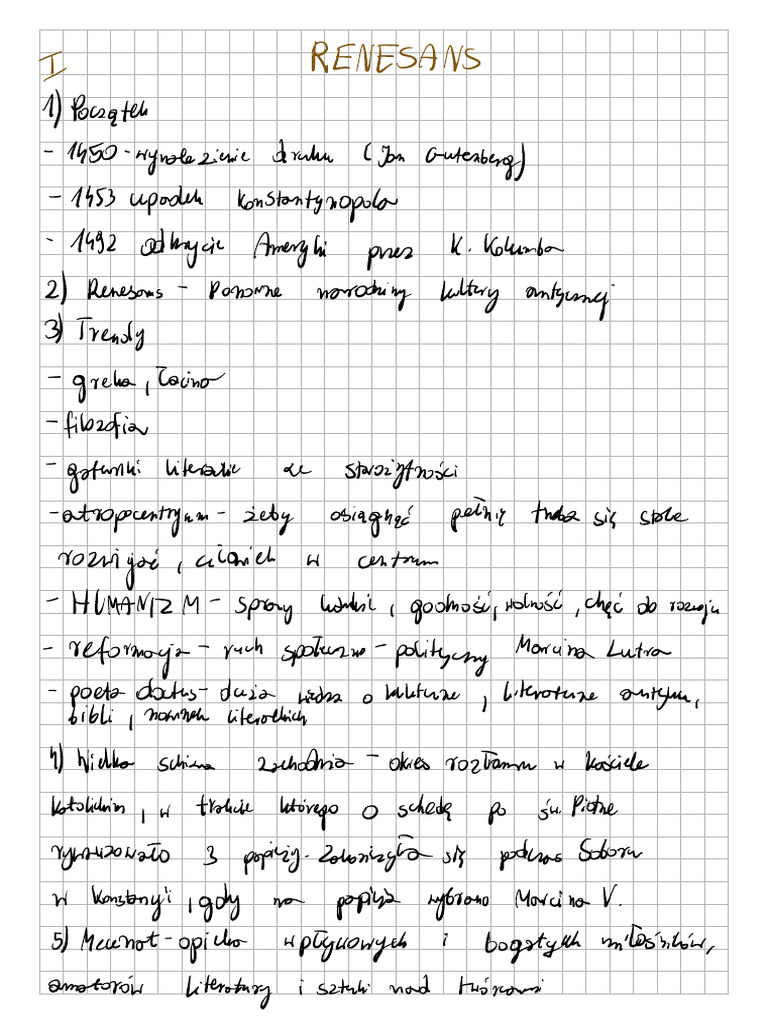 I RENESANS
1) Początek
- 1450 - wynalezienie druku (Jan Gutenberg)
- 1453 upadek Konstantynopola
- 1492 odkrycie Ameryki przez K. Kolumba
2) Renesans - Ponowne narodziny kultury antycznej
3) Trendy
- greka, łacina
- filozofia
- gatunki literackie ze starożytności
- atropocentryzm - żeby osiągnąć pełnię trzeba się stale
rozwijać, człowiek w centrum
- HUMANIZM - sprawy ludzkie, godność, wolność, chęć do rozwoju
- reformacja - ruch społeczno - polityczny Marcina Lutra
- poeta doctus - duża wiedza o kulturze, literaturze antyku,
bibli, nowinek literackich
4) Wielka schizma zachodnia - okres rozłamu w Kościele
katolickim, w trakcie którego o schedę po św. Piotrze
rywalizowało 3 papieży. Zakończyła się podczas Soboru
w Konstancji, gdy na papieża wybrano Marcina V.
5) Mecenat - opieka wpływowych i bogatych miłośników,
amatorów literatury i sztuki nad twórcami